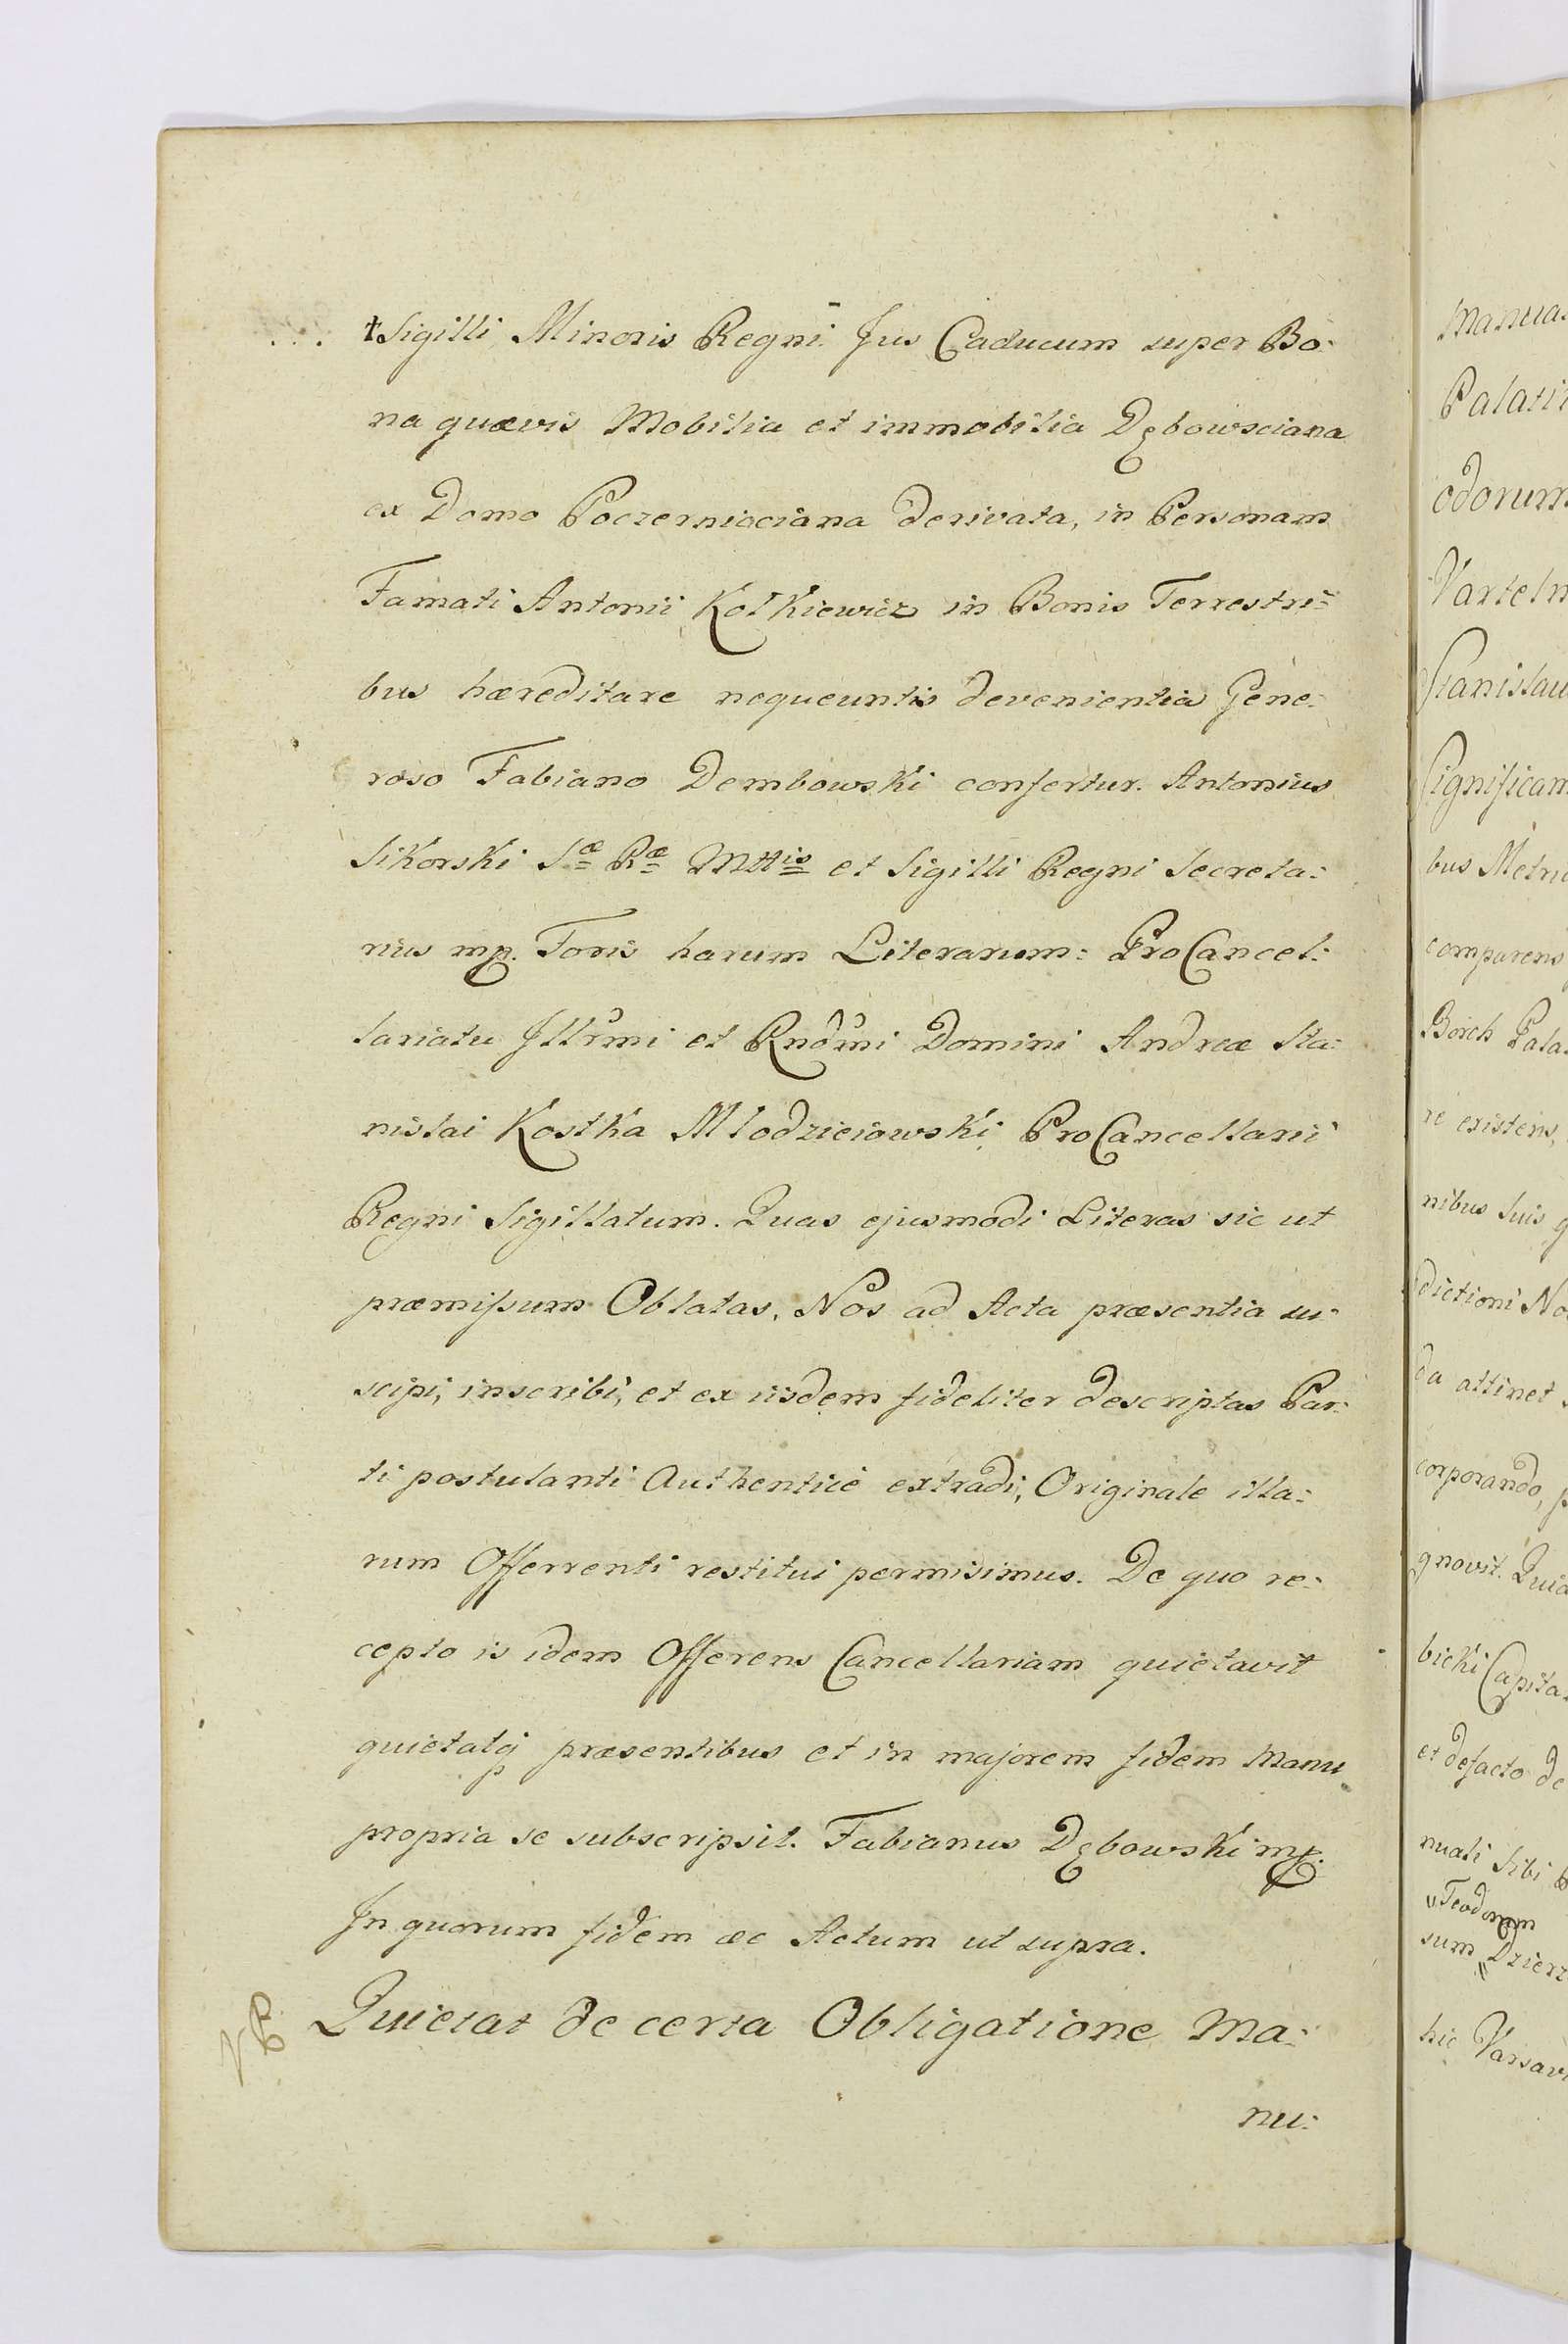 Sigilli Minoris Regni Jus Caducum super Bo:
na quævis Mobilia et immobilia Dębowsciana
ex Domo Poczerniaciana derivata, in Personam
Famati Antonii Kotkiewicz in Bonis Terrestri:
bus hæreditare nequeuntis devenientia Gene:
roso Fabiano Dembowski confertur. Antonius
Sikorski Sæ Ræ Mttis et Sigilli Regni Secreta:
rius mp. Foris harum Literarum: ProCancel:
lariatu Illrmi et Rndmi Domini Andreæ Sta:
nislai Kostka Mlodzieiowski ProCancellarii
Regni Sigillatum. Quas ejusmodi Literas sic ut
præmissum Oblatas, Nos ad Acta præsentia su:
scipi, inscribi, et ex iisdem fideliter descriptas Par:
ti postulanti Authenticè extradi, Originale illa:
rum Offerrenti restitui permisimus. De quo re:
cepto is idem Offerens Cancellariam quietavit
quietatq præsentibus et in majorem fidem Manu
propria se subscripsit. Fabianus Dębowski mp.
In quorum fidem æc Actum ut supra.
Quietat de certa Obligatione Ma:
nu:
Palati
odorum
Stanislau
Significam
bus Metri
comparens
Borch Pala
re existens,
nibus suis q
dictioni No
da attinet
corporando, p
gnovit. Quia
bicki Capita
et defacto de
nuati sibi
Teodorum
sum Dzierz
hic Varsavi